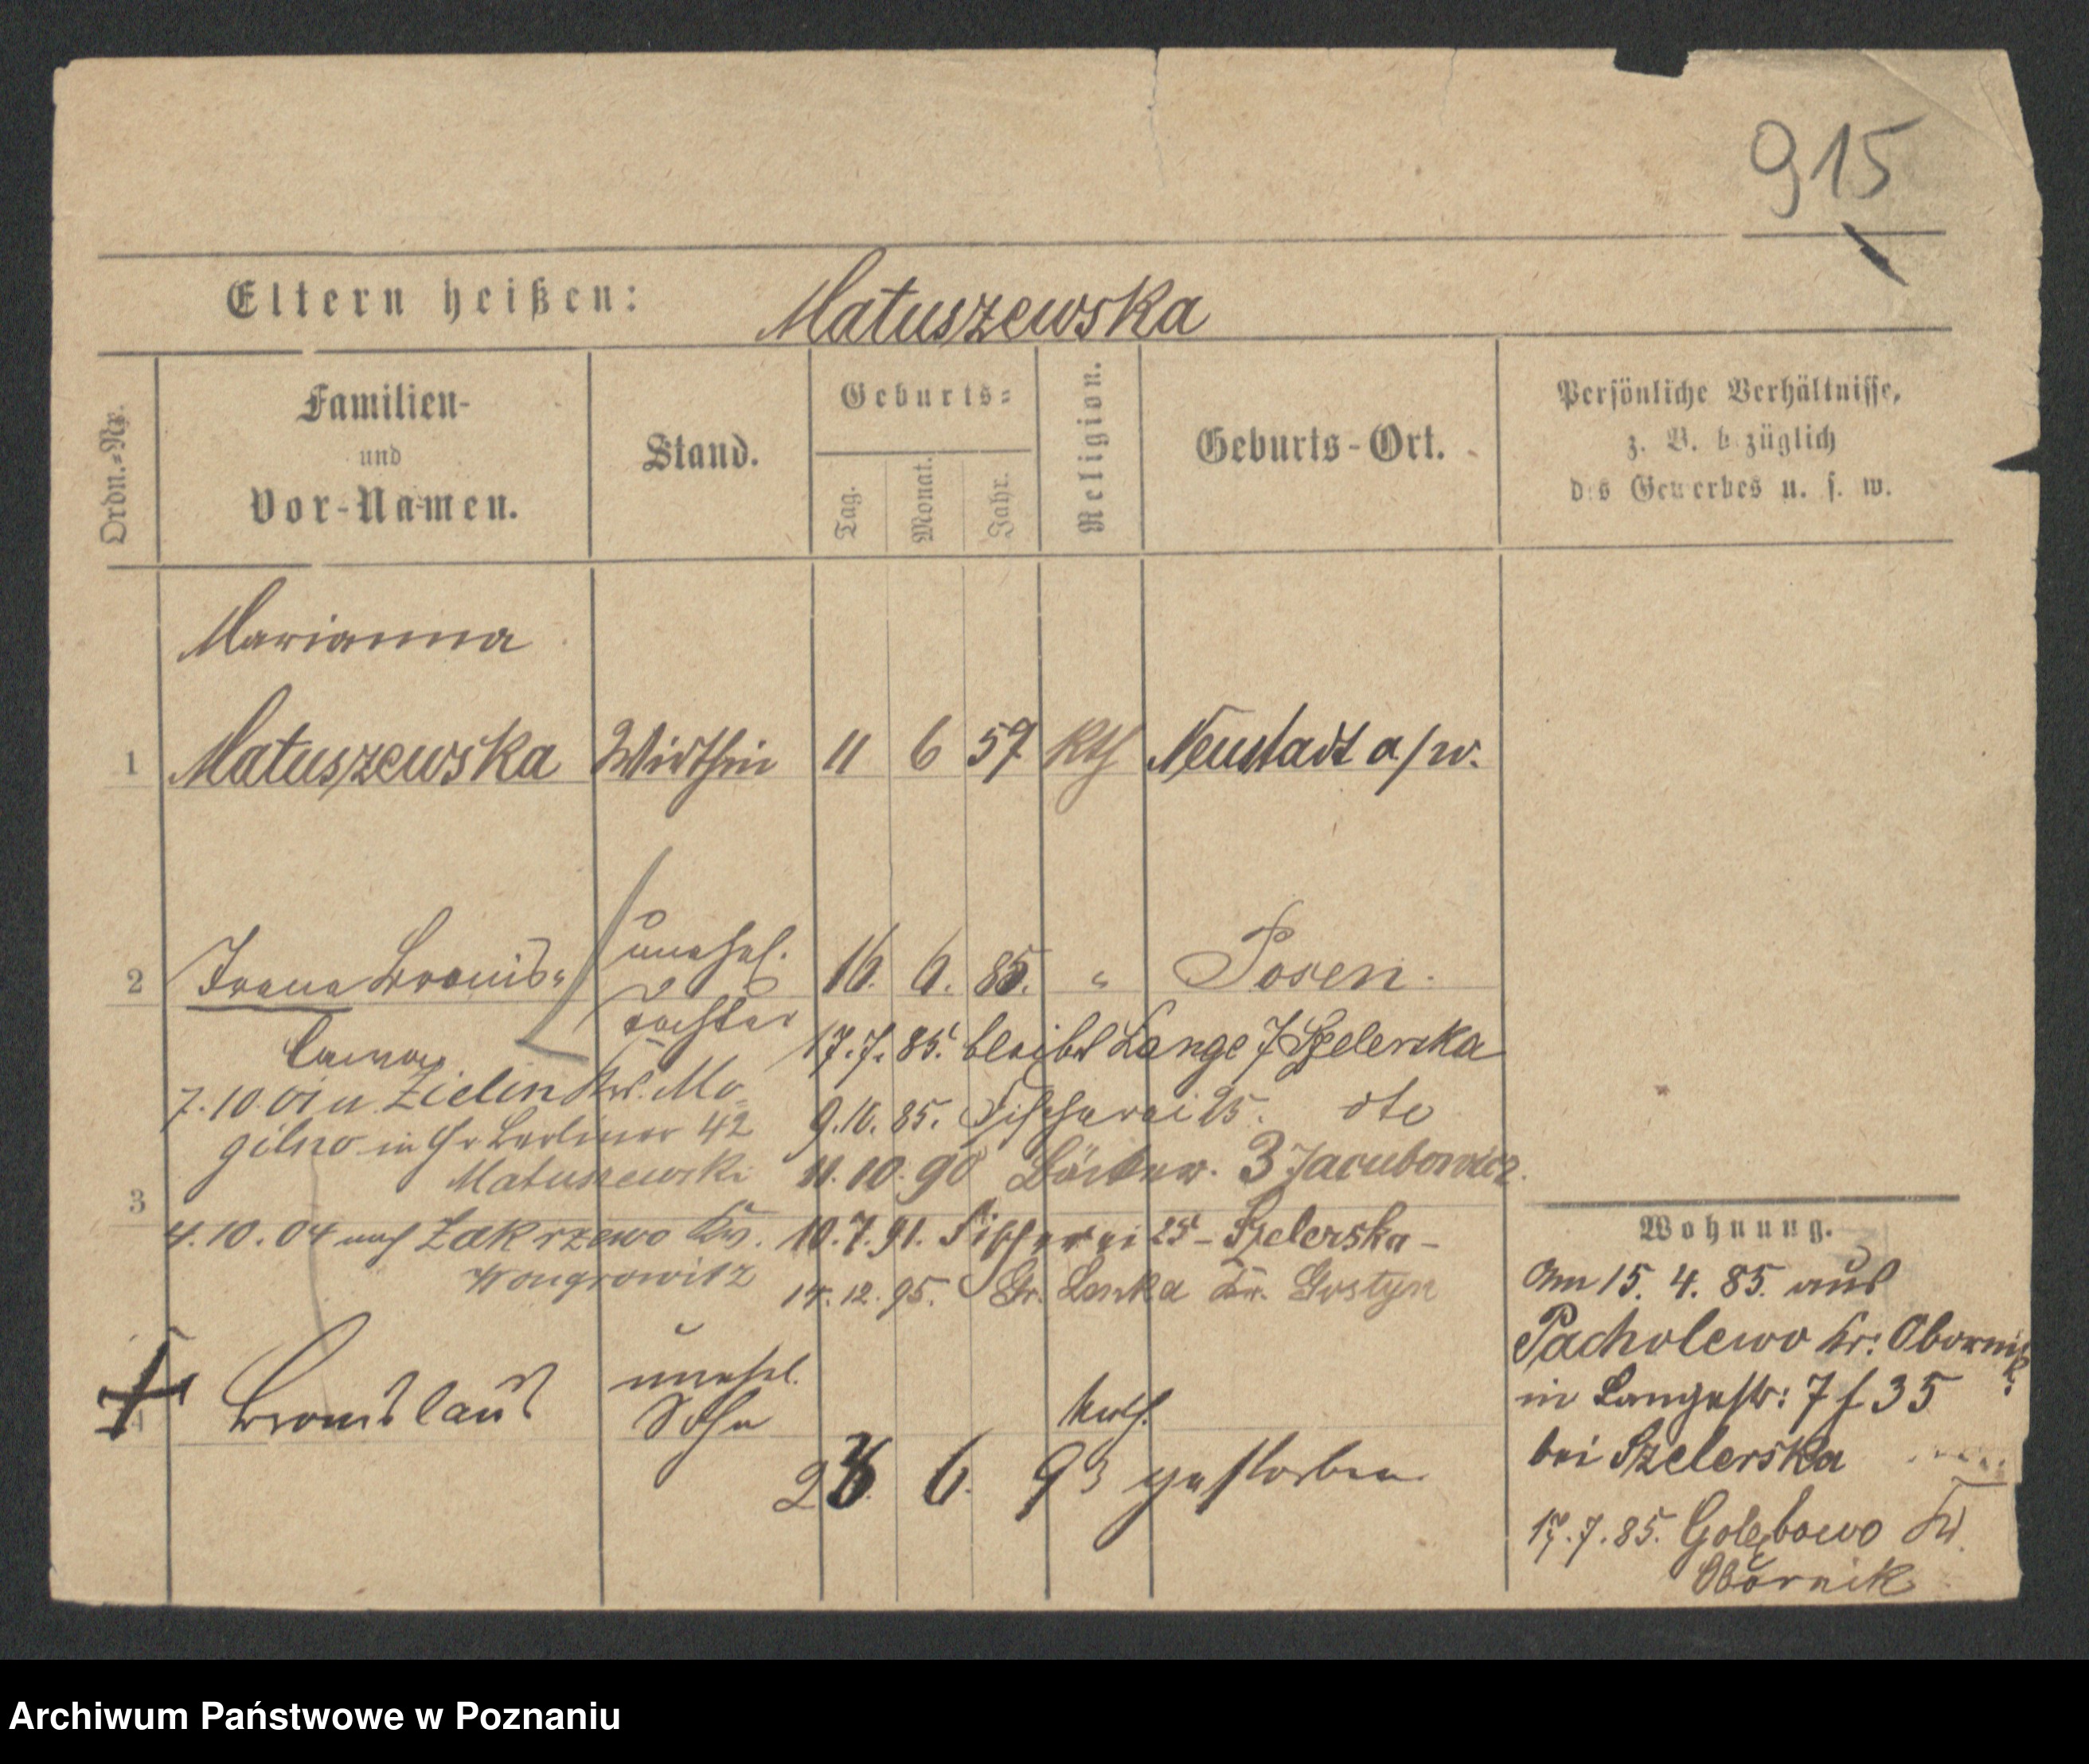 915
Eltern heißen: Matuszewska
Ordn.-Nr.
Familien-
und
Vor-Namen.
Stand.
Geburts-
Tag.
Monat.
Jahr.
Religion.
Geburts-Ort.
Persönliche Verhältnisse,
z. B. bezüglich
des Gewerbes u. s. w.
Marianna
1 Matuszewska Wirthin 11 6 57 Kth Neustadt a/w.
2 Irena Bronis- unehel. 16. 6. 85. " Posen.
Tochter
17.7.85. bleibt Lange 7 Szelerska
7.10.01 n. Zielin Krs. Mo-
gilno in Gr Berliner 42
Matuszewski
9.10.85. Fischerei 25. dto
11.10.90 3 Jacubowicz.
3
4.10.04 nach Zakrzewo Kr.
Wongrowitz
10.7.91. Fischerei 25 - Szelerska -
14.12.95. Gr. Lenka Kr. Gostyn
4 Bronislaus unehel.
Sohn
kath.
6. 93 gestorben
Wohnung.
Am 15. 4. 85. aus
Pacholewo Kr: Obornik
in Langestr: 7 f 35
bei Szelerska
17.7.85. Golębowo Kr.
Obornik
Archiwum Państwowe w Poznaniu